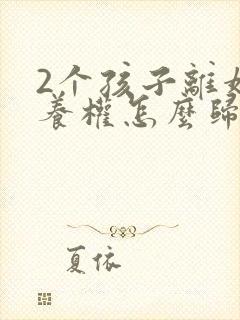 2个孩子離
養權怎麼歸
夏依